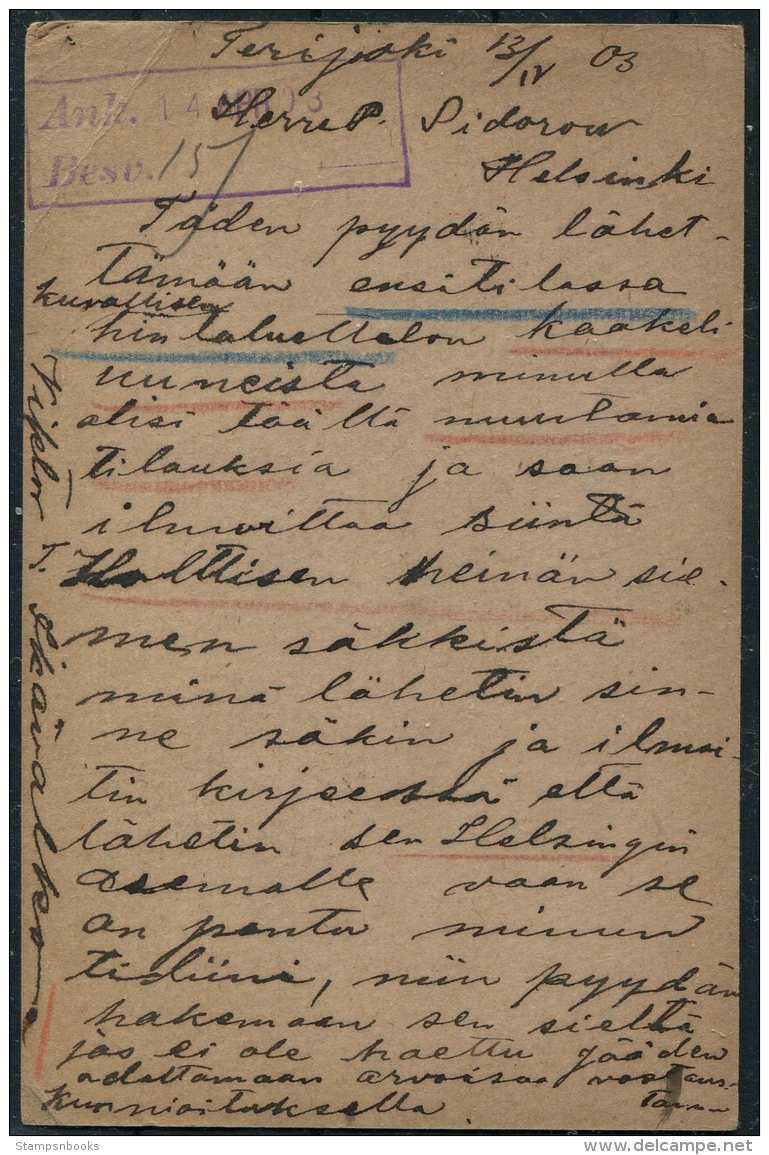 Terijoki 13/IV 03
Ank. 14 APR 03
Herra P. Sidorow
Besv. 15/
Helsinki
Täden pyydän lähet-
tämään ensitilassa
kuvallisen
hintaluettelon kaakeli
uuneista minulla
olisi täältä muutamia
tilauksia ja saan
ilmoittaa siintä
Holttisen heinän sie-
men säkkistä
minä lähetin sin-
ne säkin ja ilmoi-
tin kirjeessä että
lähetin sen Helsingin
asemalle vaan se
on pantu minun
tidliini, niin pyydän
hakemaan sen sieltä
jos ei ole haettu jääden
odottamaan arvoisaa vastaus-
kunnioituksella tanne
Viktor T. Ikävalko
Stampsnbooks
delcampe.net